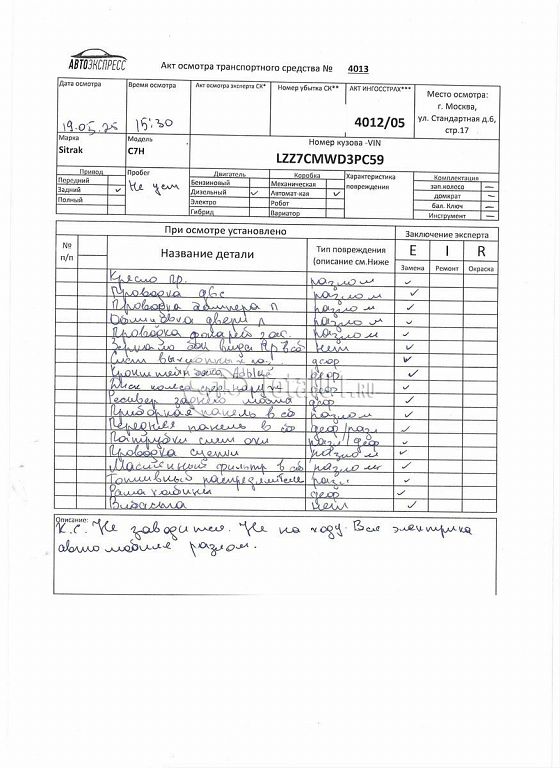 АВТОЭКСПРЕСС
Акт осмотра транспортного средства № 4013
Дата осмотра Время осмотра Акт осмотра эксперта СК* Номер убытка СК** АКТ ИНГОССТРАХ*** Место осмотра:
г. Москва,
ул. Стандартная д.6,
стр.17
19.05.25 15:30 4012/05
Марка Модель Номер кузова -VIN
Sitrak C7H LZZ7CMWD3PC59
Привод Пробег Двигатель Коробка Характеристика повреждения Комплектация
Передний Бензиновый Механическая зап.колесо —
Задний ✓ Не уст Дизельный ✓ Автомат-кая ✓ домкрат —
Полный Электро Робот бал. Ключ —
Гибрид Вариатор Инструмент —
При осмотре установлено Заключение эксперта
№ п/п Название детали Тип повреждения (описание см.Ниже E I R
Замена Ремонт Окраска
Кресло пр. разлом ✓
Проводка двс разлом ✓
Проводка бампера п разлом ✓
Обшивка двери л разлом ✓
Проводка фонарей зас. разлом ✓
Зеркало вида пр в сб нет ✓
Сист выхлопных г. деф ✓
Кронштейн Adblue деф ✓
Диск колеса деф ✓
Ресивер заднего моста деф ✓
Приборная панель в сб разлом ✓
Передняя панель в сб деф/разл ✓
Патрубки сист охл разл/деф ✓
Проводка сцепки разлом ✓
Масляный фильтр в сб разлом ✓
Топливный распределитель разл. ✓
Рама кабины деф ✓
нет ✓
Описание:
К.С. Не заводится. Не на ходу. Вся электрика
автомобиля разлом.